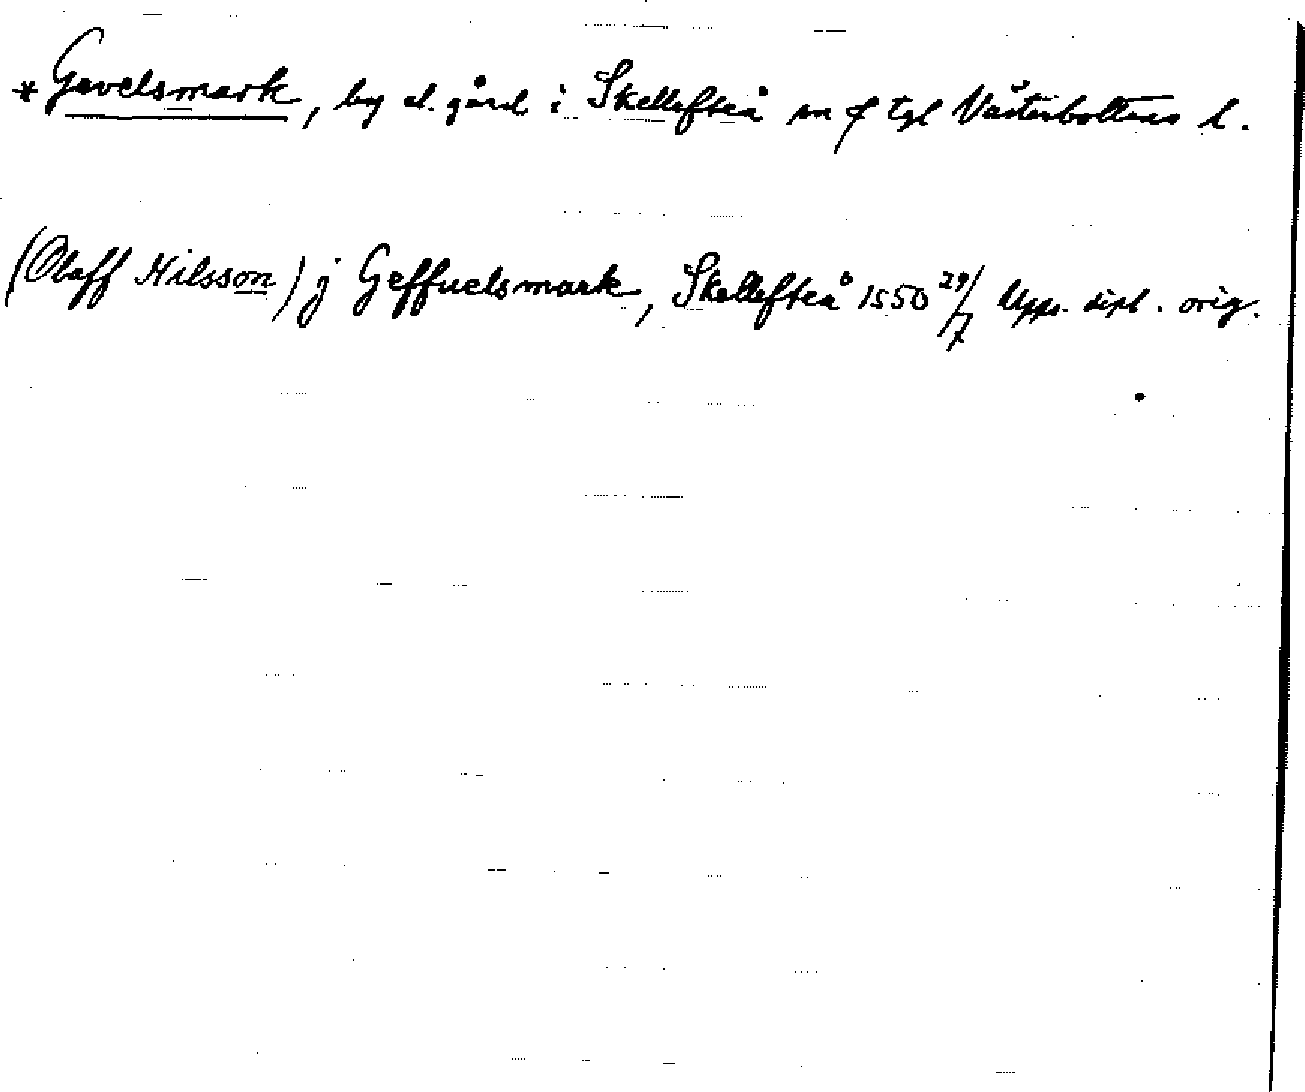 * Gavelsmark, by el. gård i Skellefteå sn o tgl Västerbottens l.
(Olaff Nilsson) j Geffuelsmark, Skellefteå 1550 29/7 Upps. dipl. orig.